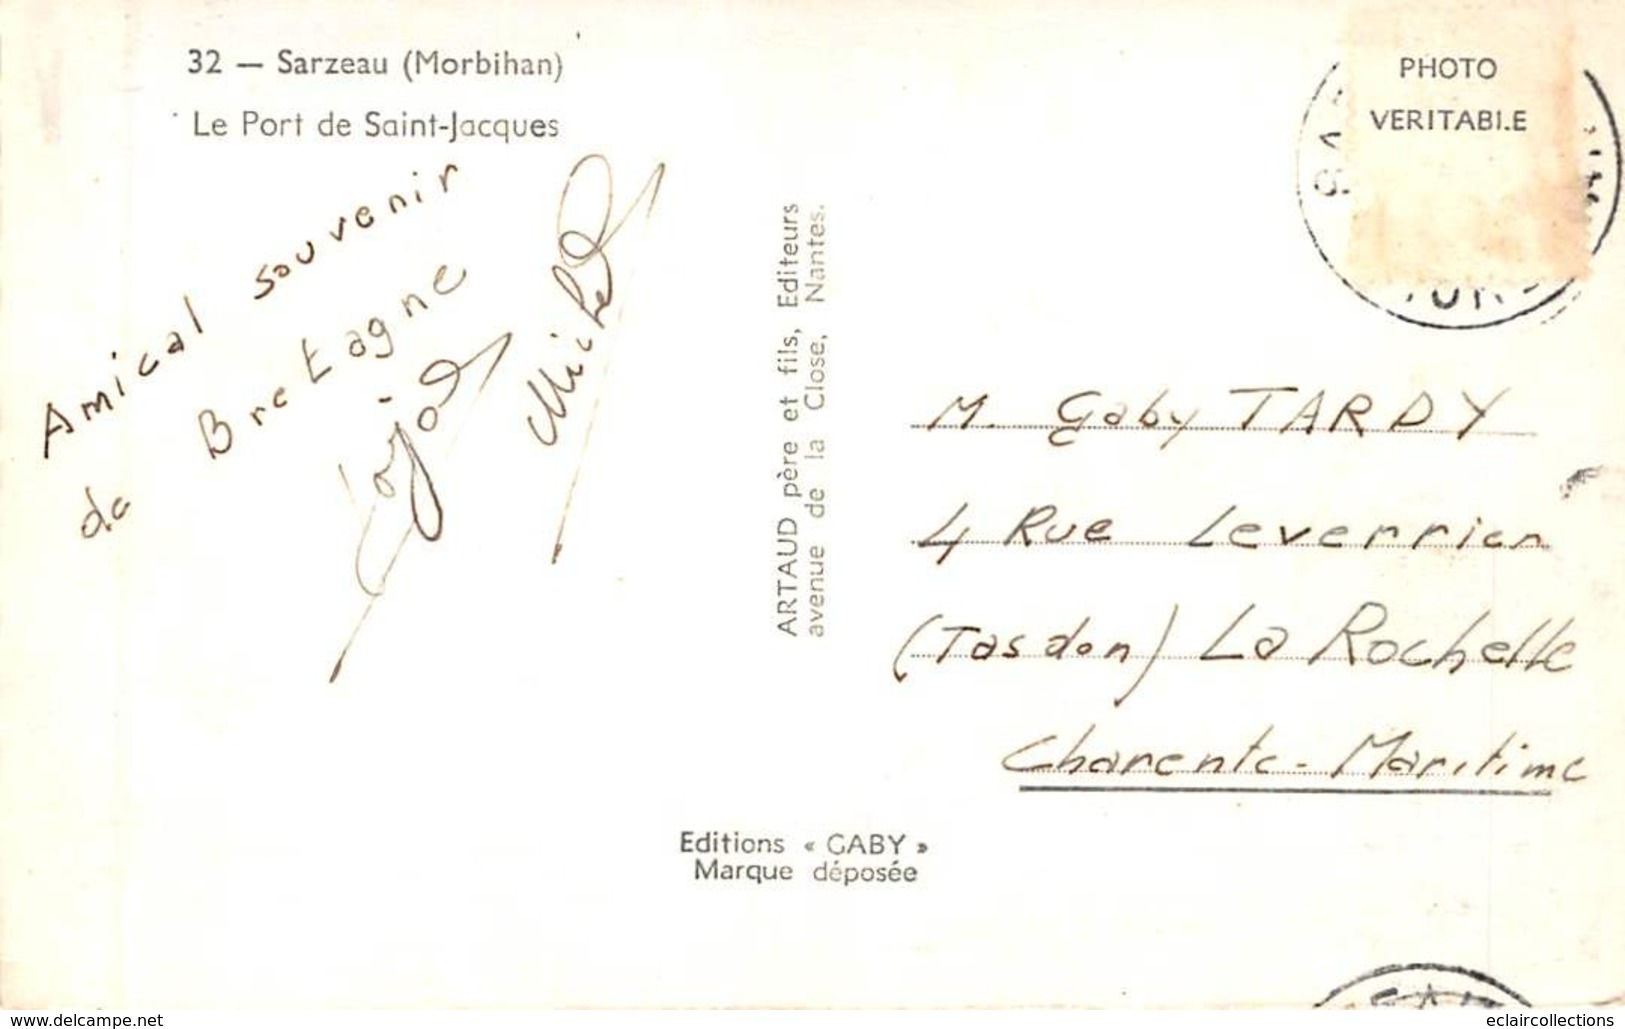 32 — Sarzeau (Morbihan)
Le Port de Saint-Jacques
Amical souvenir
de Bretagne
Michel
ARTAUD père et fils, Editeurs
avenue de la Close, Nantes.
PHOTO
VERITABLE
M. Gaby TARDY
4 Rue Leverrier
(Tasdon) La Rochelle
Charente-Maritime
Editions « GABY »
Marque déposée
www.delcampe.net
eclaircollections